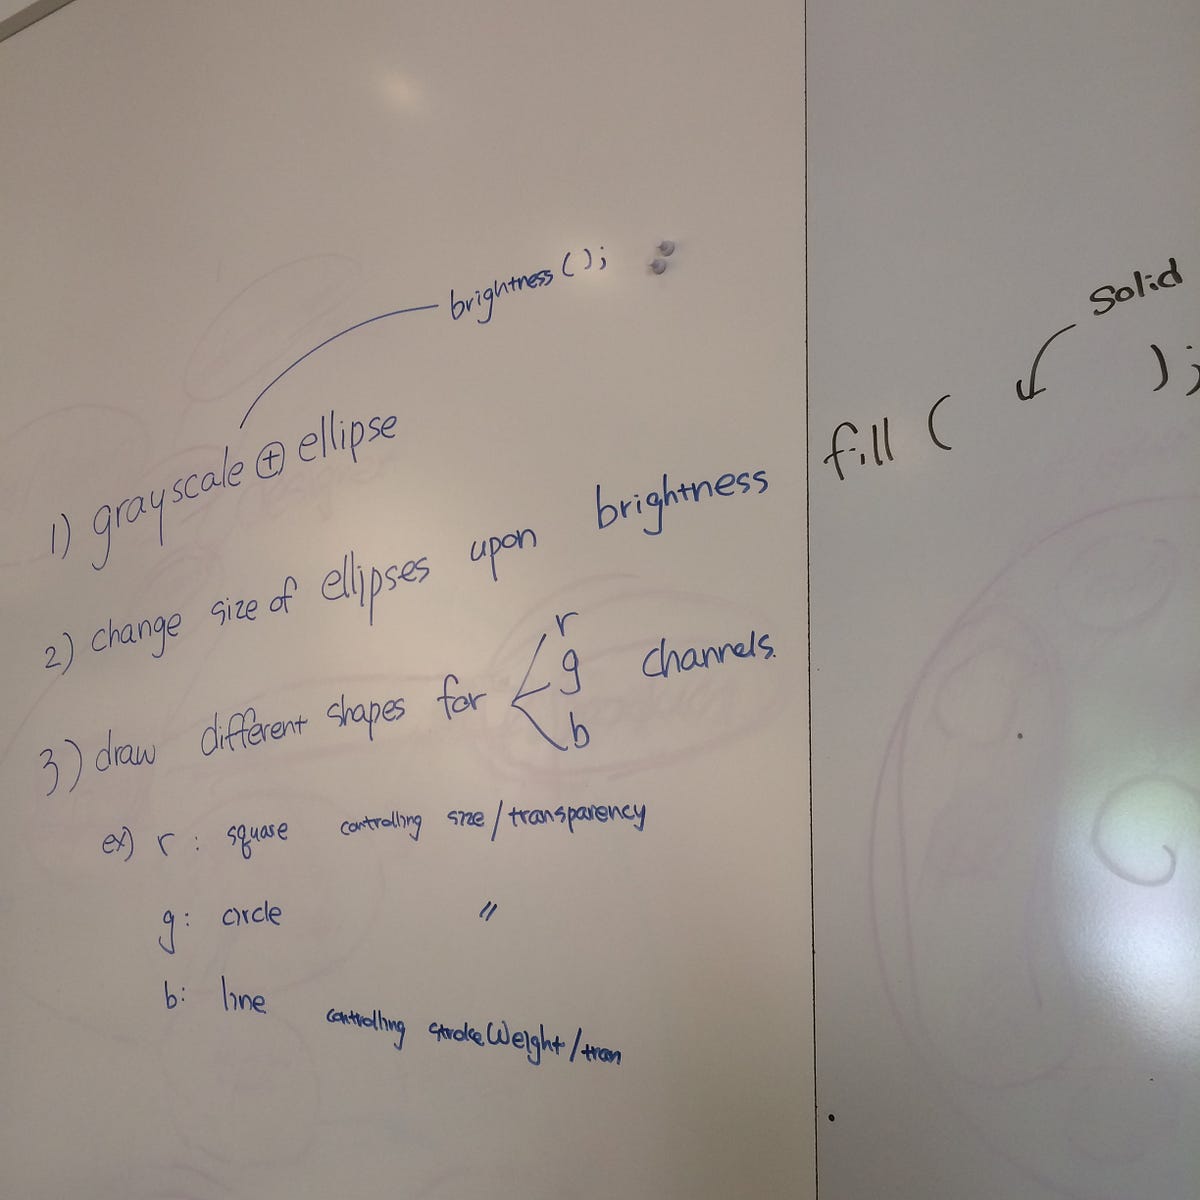 brightness();
1) grayscale ⊕ ellipse
2) change size of ellipses upon brightness
3) draw different shapes for r g b channels.
ex) r : square controlling size/transparency
g: circle "
b: line controlling strokeWeight/tran
Solid
fill ( );